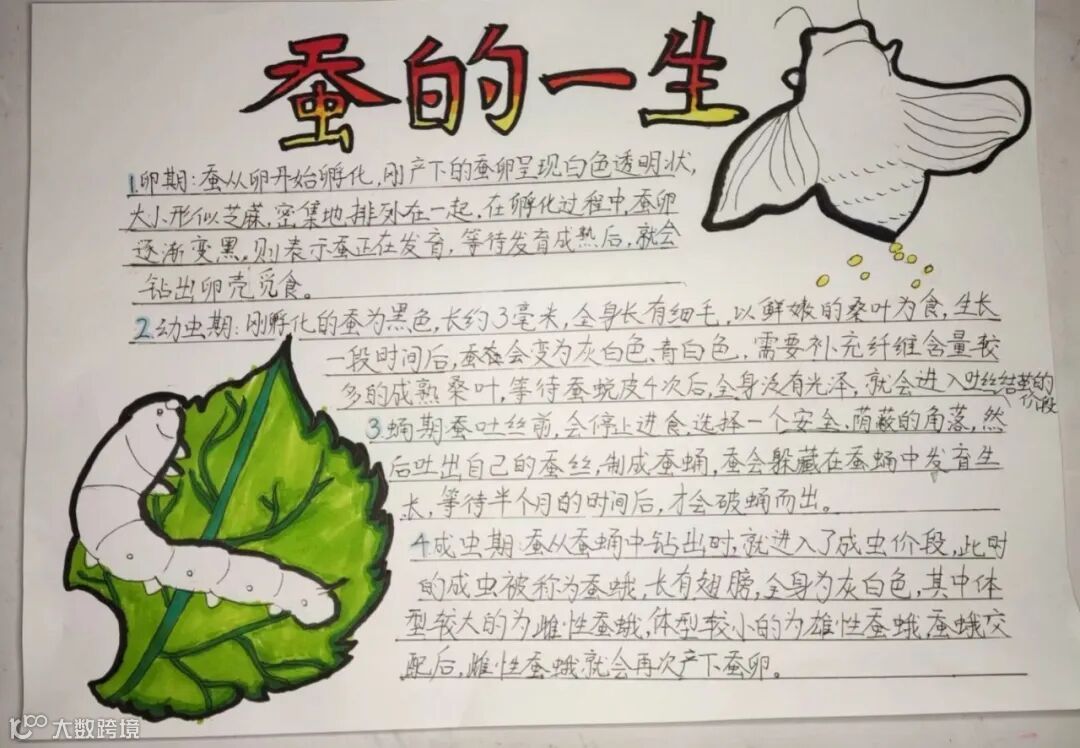 蚕的一生
1.卵期:蚕从卵开始孵化,刚产下的蚕卵呈现白色透明状,
大小形似芝麻,密集地排列在一起,在孵化过程中,蚕卵
逐渐变黑,则表示蚕正在发育,等待发育成熟后,就会
钻出卵壳觅食。
2.幼虫期:刚孵化的蚕为黑色,长约3毫米,全身长有细毛,以鲜嫩的桑叶为食,生长
一段时间后,蚕会变为灰白色、青白色,需要补充纤维含量较
多的成熟桑叶,等待蚕蜕皮4次后,全身泛有光泽,就会进入吐丝结茧的
价段
3.蛹期蚕吐丝前,会停止进食,选择一个安全、荫蔽的角落,然
后吐出自己的蚕丝,制成蚕蛹,蚕会躲藏在蚕蛹中发育生
长,等待半个月的时间后,才会破蛹而出。
4.成虫期:蚕从蚕蛹中钻出时,就进入了成虫价段,此时
的成虫被称为蚕蛾,长有翅膀,全身为灰白色,其中体
型较大的为雌性蚕蛾,体型较小的为雄性蚕蛾,蚕蛾交
配后,雌性蚕蛾就会再次产下蚕卵。
大数跨境